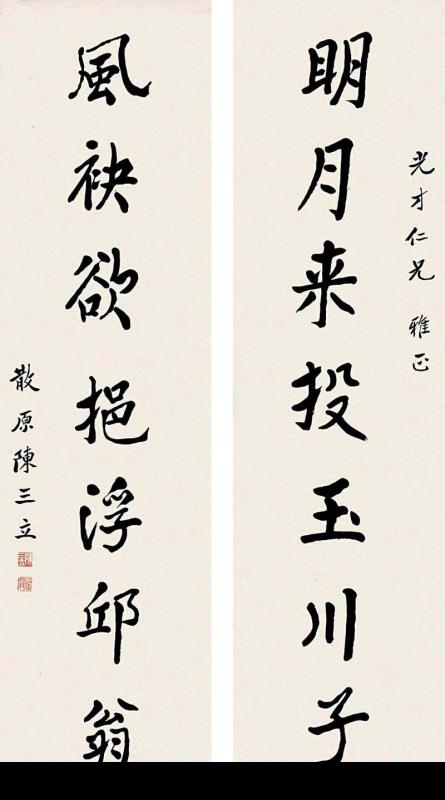 光才仁兄 雅正
明月来投玉川子
風袂欲挹浮邱翁
散原陳三立